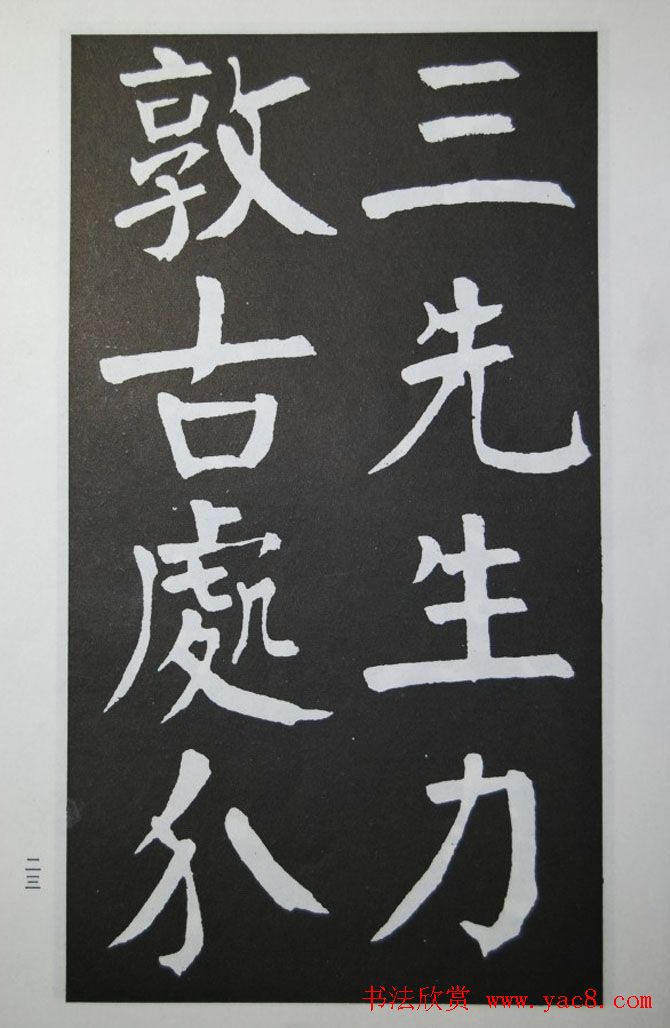 三先生力
敦古處分
二三
书法欣赏 www.yac8.com